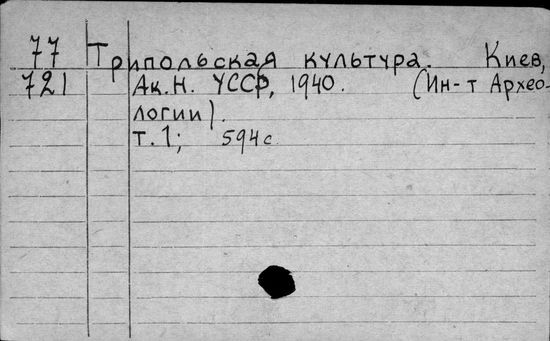 77 Трипольская культура. Киев,
721 Ак.Н. УССР, 1940. (Ин-т Архео-
логии).
т.1; 594с